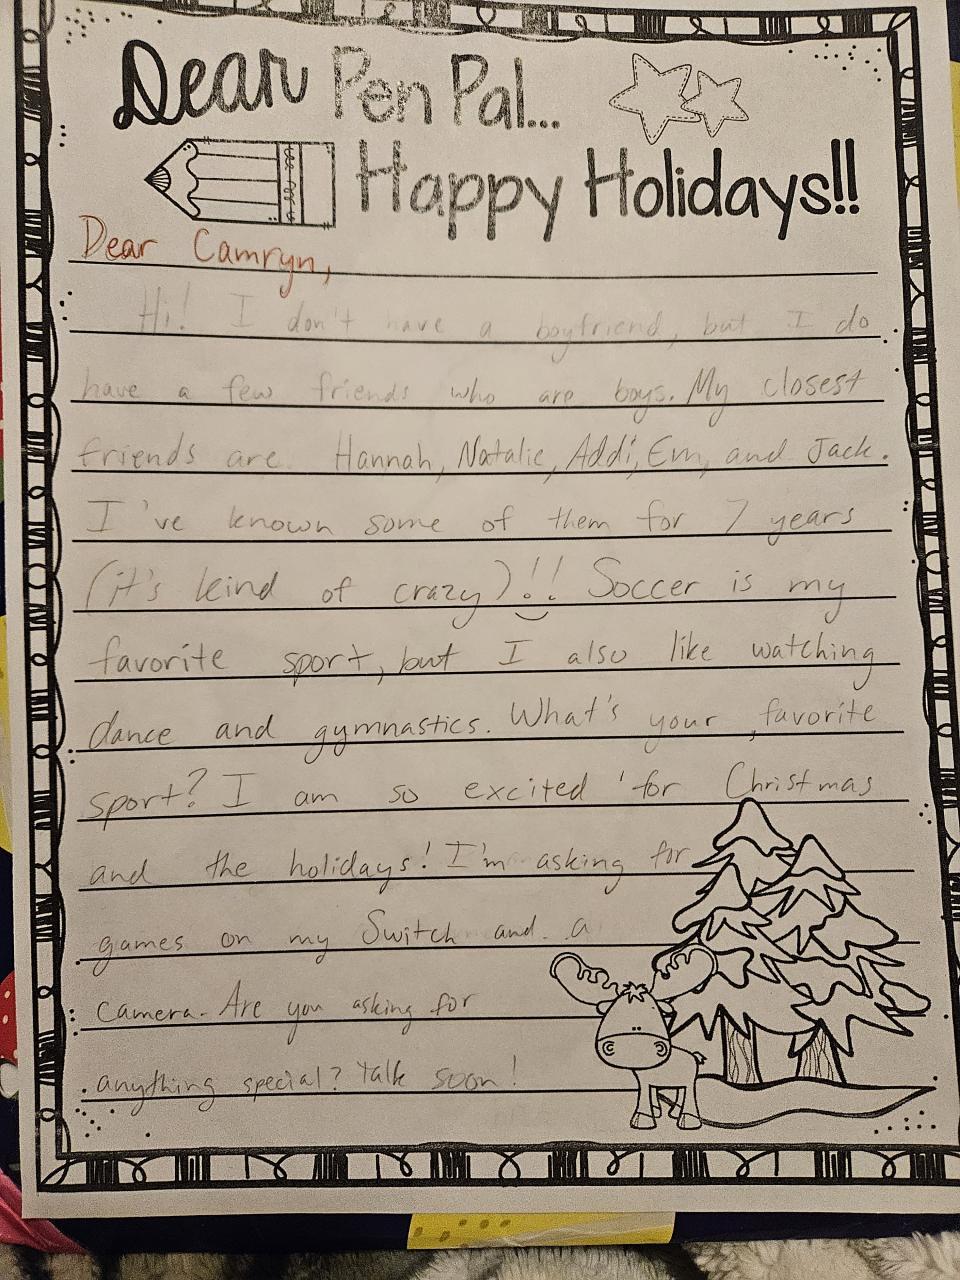 Dear Pen Pal...
Happy Holidays!!
Dear Camryn,
Hi! I don't have a boyfriend, but I do
have a few friends who are boys. My closest
friends are Hannah, Natalie, Addi, Em, and Jack.
I've known some of them for 7 years
(it's kind of crazy)!! Soccer is my
favorite sport, but I also like watching
dance and gymnastics. What's your favorite
sport? I am so excited for Christmas
and the holidays! I'm asking for
games on my Switch and a
camera. Are you asking for
anything special? Talk soon!